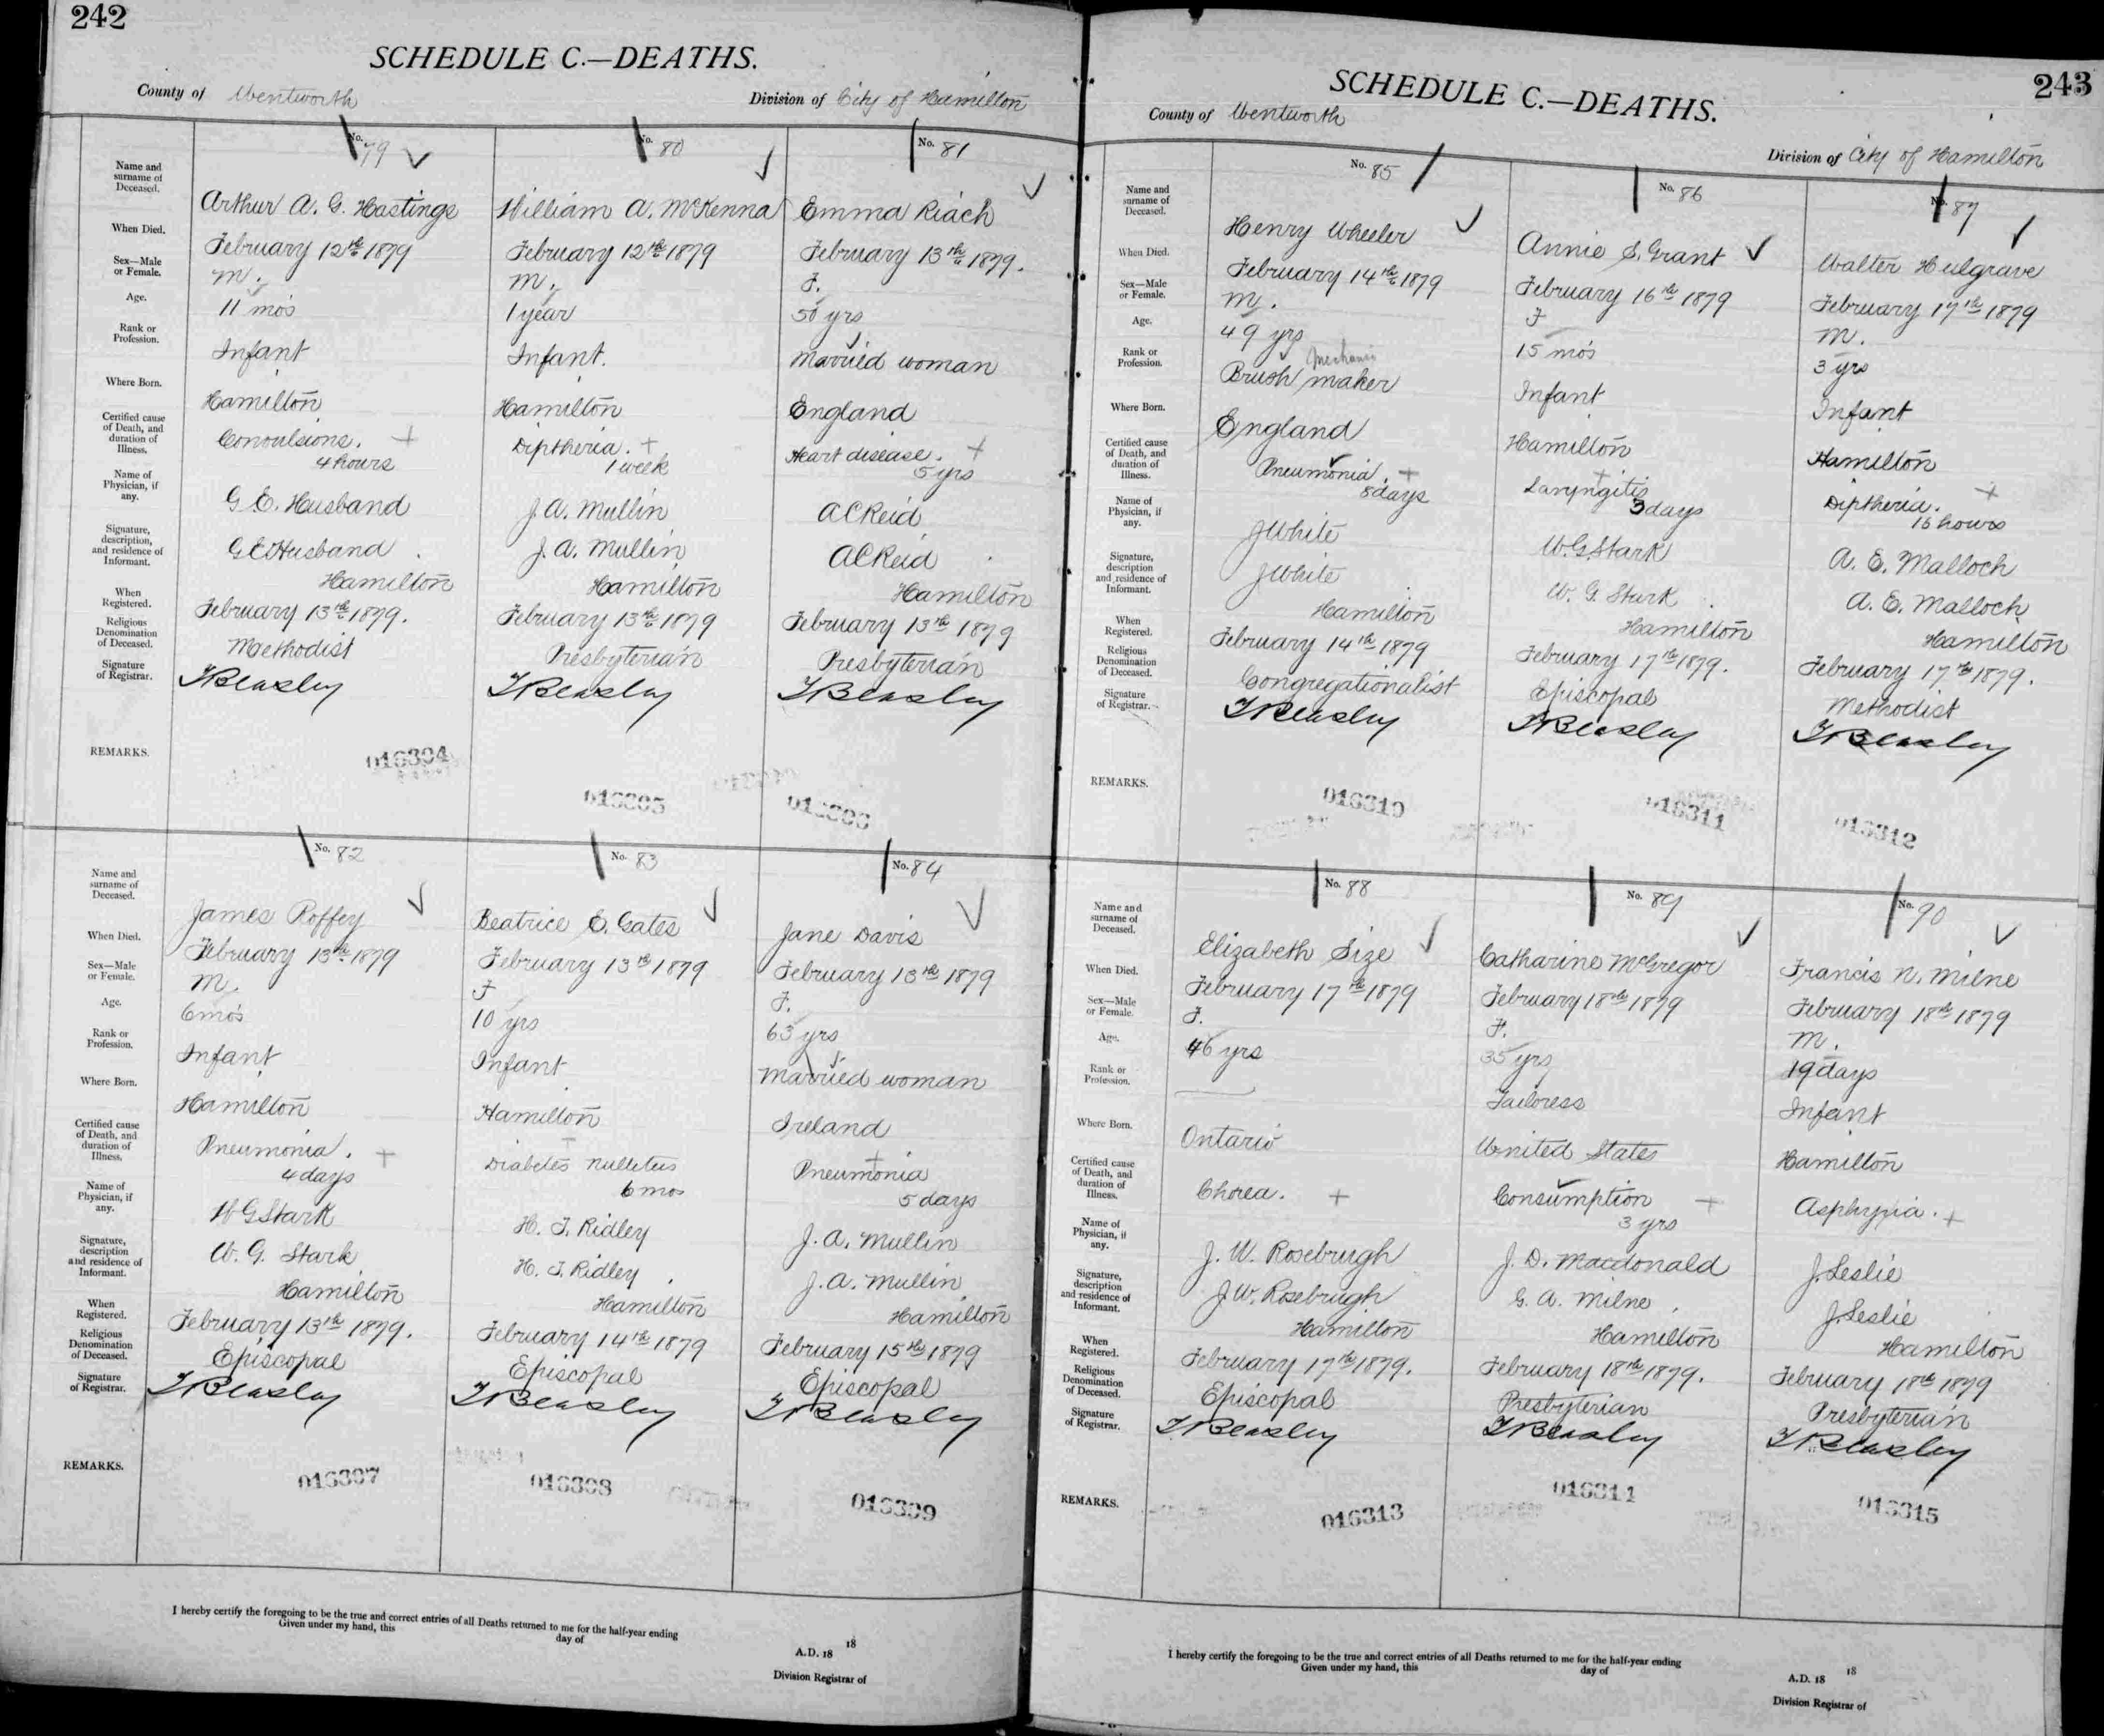 242
SCHEDULE C.—DEATHS.
County of Wentworth
Division of City of Hamilton
No. 79
Name and surname of Deceased.
Arthur A. G. Hastings
When Died.
February 12th 1879
Sex—Male or Female.
M.
Age.
11 mos
Rank or Profession.
Infant
Where Born.
Hamilton
Certified cause of Death, and duration of Illness.
Convulsions. +
4 hours
Name of Physician, if any.
G. E. Husband
Signature, description, and residence of Informant.
G E Husband
Hamilton
When Registered.
February 13th 1879.
Religious Denomination of Deceased.
Methodist
Signature of Registrar.
T Beasley
REMARKS.
016304
No. 80
William A. McKenna
February 12th 1879
M.
1 year
Infant.
Hamilton
Diptheria. +
1 week
J. A. Mullin
J. A. Mullin
Hamilton
February 13th 1879
Presbyterian
T Beasley
016305
No. 81
Emma Riach
February 13th 1879.
F.
50 yrs
Married woman
England
Heart disease. +
5 yrs
A C Reid
A C Reid
Hamilton
February 13th 1879
Presbyterian
T Beasley
No. 82
Name and surname of Deceased.
James Roffey
When Died.
February 13th 1879
Sex—Male or Female.
M.
Age.
6 mos
Rank or Profession.
Infant
Where Born.
Hamilton
Certified cause of Death, and duration of Illness.
Pneumonia. +
4 days
Name of Physician, if any.
W G Stark
Signature, description and residence of Informant.
W. G. Stark
Hamilton
When Registered.
February 13th 1879.
Religious Denomination of Deceased.
Episcopal
Signature of Registrar.
T Beasley
REMARKS.
016307
No. 83
Beatrice E. Gates
February 13th 1879
F
10 yrs
Infant
Hamilton
Diabetes Mulletus
6 mos
H. T. Ridley
H. T. Ridley
Hamilton
February 14th 1879
Episcopal
T Beasley
016308
No. 84
Jane Davis
February 13th 1879
F.
63 yrs
Married woman
Ireland
+
Pneumonia
5 days
J. A. Mullin
J. A. Mullin
Hamilton
February 15th 1879
Episcopal
T Beasley
016309
I hereby certify the foregoing to be the true and correct entries of all Deaths returned to me for the half-year ending 18
Given under my hand, this day of A.D. 18
Division Registrar of
243
SCHEDULE C.—DEATHS.
County of Wentworth
Division of City of Hamilton
No. 85
Name and surname of Deceased.
Henry Wheeler
When Died.
February 14th 1879
Sex—Male or Female.
M.
Age.
49 yrs
Rank or Profession.
Mechanic
Brush maker
Where Born.
England
Certified cause of Death, and duration of Illness.
Pneumonia. +
8 days
Name of Physician, if any.
J White
Signature, description and residence of Informant.
J White
Hamilton
When Registered.
February 14th 1879
Religious Denomination of Deceased.
Congregationalist
Signature of Registrar.
T Beasley
REMARKS.
016310
No. 86
Annie S. Grant
February 16th 1879
F
15 mos
Infant
Hamilton
+
Laryngitis
3 days
W. G. Stark
W. G. Stark
Hamilton
February 17th 1879.
Episcopal
T Beasley
016311
No. 87
Walter Hulgrave
February 17th 1879
M.
3 yrs
Infant
Hamilton
Diptheria. +
A. E. Malloch
A. E. Malloch
Hamilton
February 17th 1879.
Methodist
T Beasley
016312
No. 88
Name and surname of Deceased.
Elizabeth Size
When Died.
February 17th 1879
Sex—Male or Female.
F.
Age.
46 yrs
Rank or Profession.
Where Born.
Ontario
Certified cause of Death, and duration of Illness.
Chorea. +
Name of Physician, if any.
J. W. Rosebrugh
Signature, description and residence of Informant.
J. W. Rosebrugh
Hamilton
When Registered.
February 17th 1879.
Religious Denomination of Deceased.
Episcopal
Signature of Registrar.
T Beasley
REMARKS.
016313
No. 89
Catharine McGregor
February 18th 1879
F.
35 yrs
Tailoress
United States
Consumption +
3 yrs
J. D. Macdonald
G. A. Milne
Hamilton
February 18th 1879.
Presbyterian
T Beasley
016314
No. 90
Francis N. Milne
February 18th 1879
M.
19 days
Infant
Hamilton
Asphyxia. +
J. Leslie
J. Leslie
Hamilton
February 18th 1879
Presbyterian
T Beasley
016315
I hereby certify the foregoing to be the true and correct entries of all Deaths returned to me for the half-year ending 18
Given under my hand, this day of A.D. 18
Division Registrar of